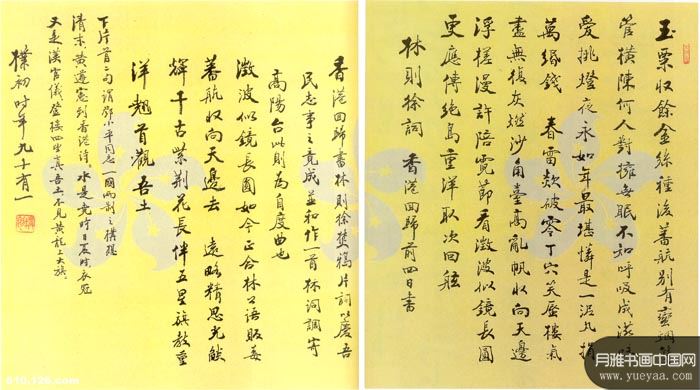 玉粟收餘金絲種後蕃航別有蠻煙
管橫陳何人對擁無眠不知呼吸成滋味
愛挑燈夜永如年最堪憐是一泥丸捐
萬緡錢 春雷欻破零丁穴笑蜃樓氣
盡無復灰燃沙角臺高亂帆收向天邊
浮槎漫許陪霓節看澂波似鏡長圓
更應傳絕島重洋取次回舷
林則徐詞 香港回歸前四日書
香港回歸書林則徐禁鴉片詞以慶吾
民志事之竟成並和作一首林詞調寄
高陽台此則為自度曲也
澂波似鏡長圓如今正合林公語販毒
蕃航收向天邊去 遠略精思光燄
輝千古紫荆花長伴五星旗教重
洋翹首觀吾土
下片首二句謂鄧小平同志一國兩制之構想
清末黃遵憲到香港詩水是堯時日夏時衣冠
又是漢官儀登樓四望真吾土不見黃龍上大旗
樸初時年九十有一
月雅书画中国网
www.yueyaa.com